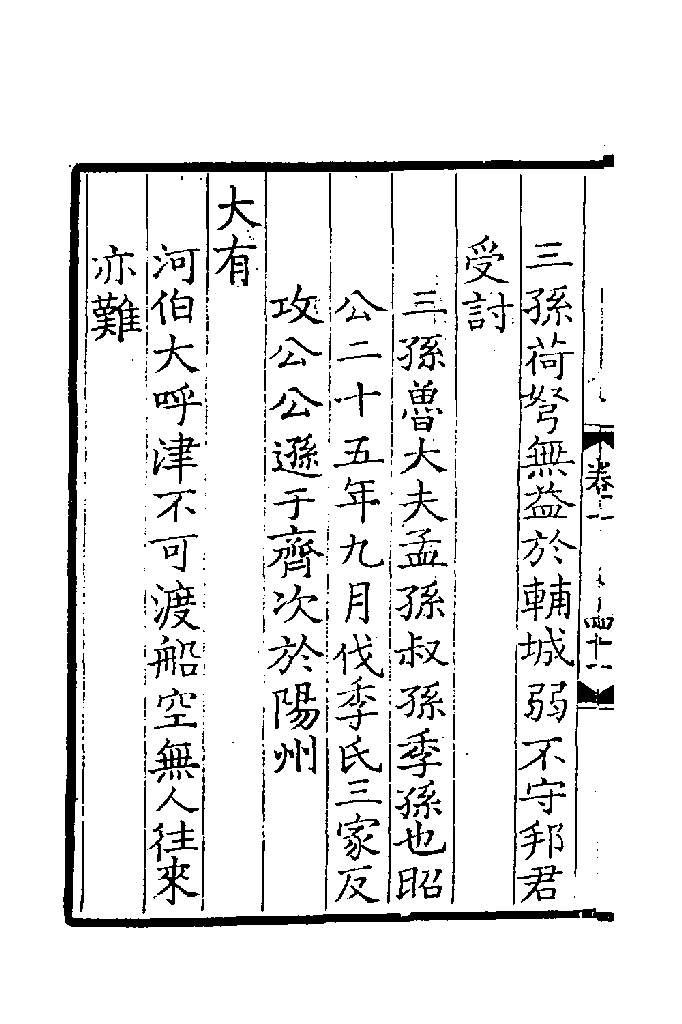 三孫荷弩無益於輔城弱不守邦君
受討
三孫魯大夫孟孫叔孫季孫也昭
公二十五年九月伐季氏三家反
攻公公遜于齊次於陽州
大有
河伯大呼津不可渡船空無人往來
亦難
卷二
四十一